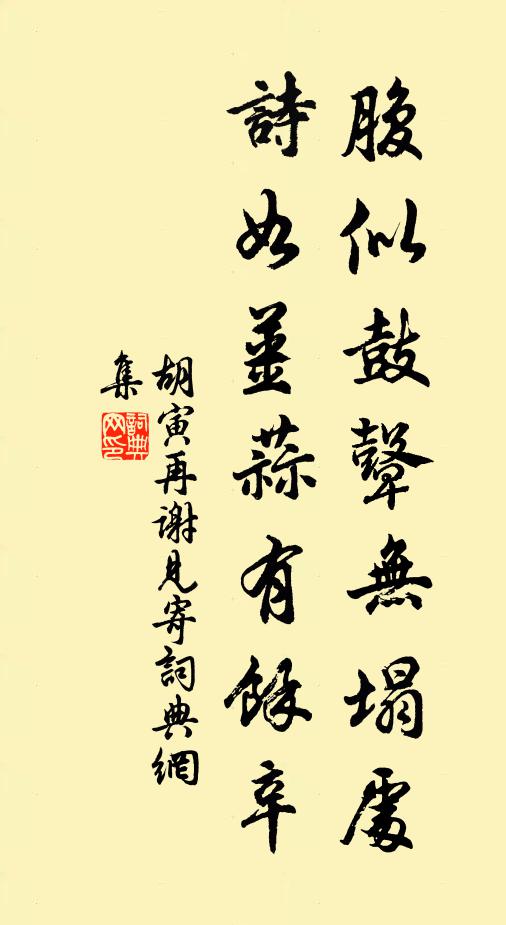 腹似鼓鼙無塌處
詩如薑蒜有餘辛
胡寅再谢見寄詞典網
集
詞典網印